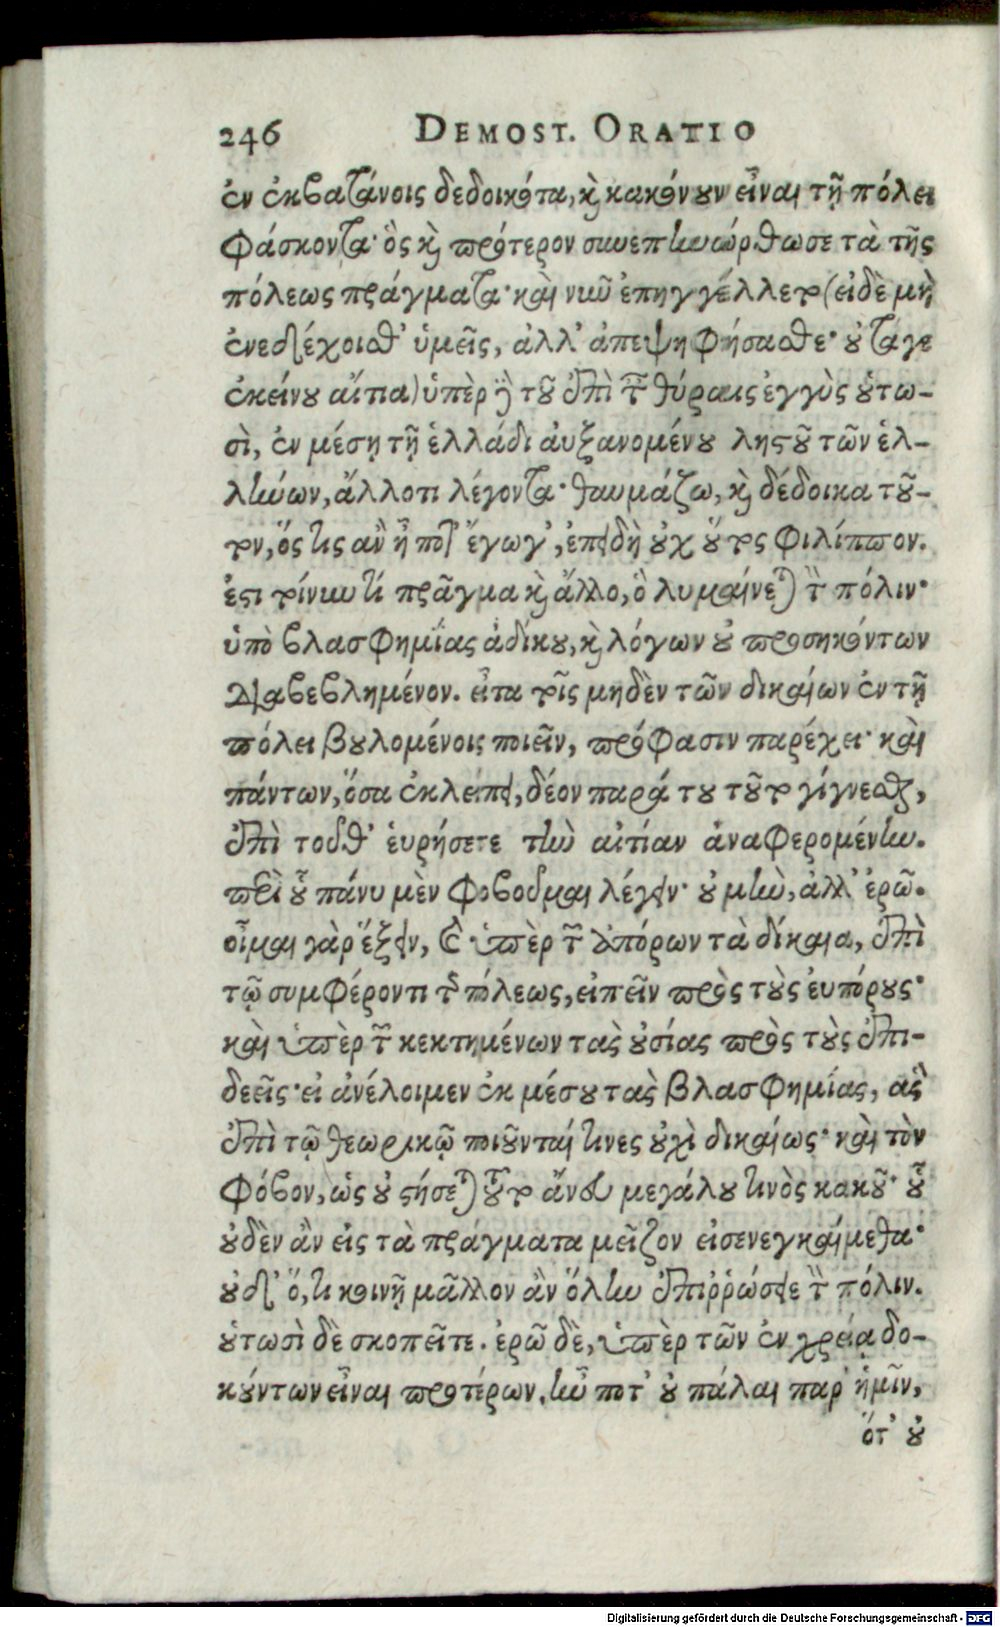 246 DEMOST. ORATIO
ἐν ἐκβατάνοις δεδοικότα, καὶ κακόνουν εἶναι τῇ πόλει
φάσκοντα· ὃς καὶ πρότερον συνεπηνώρθωσε τὰ τῆς
πόλεως πράγματα· καὶ νῦν ἐπηγγέλλετο (εἰ δὲ μὴ
ἐνεδέχοισθ' ὑμεῖς, ἀλλ' ἀπεψηφήσασθε· οὐ τά γε
ἐκείνου αἴτια) ὑπὲρ δὲ τοῦ ἐπὶ ταῖς θύραις ἐγγὺς οὑτω-
σὶ, ἐν μέσῃ τῇ ἑλλάδι αὐξανομένου λῃστοῦ τῶν ἑλ-
λήνων, ἄλλο τι λέγοντα· θαυμάζω, καὶ δέδοικα τοῦ-
τον, ὅς τις ἂν ᾖ ποτ' ἔγωγ', ἐπειδὴ οὐχ οὗτος φιλίππον.
ἔστι τοίνυν τι πρᾶγμα καὶ ἄλλο, ὃ λυμαίνεται τὴν πόλιν·
ὑπὸ βλασφημίας ἀδίκου, καὶ λόγων οὐ προσηκόντων
διαβεβλημένον. εἶτα τοῖς μηδὲν τῶν δικαίων ἐν τῇ
πόλει βουλομένοις ποιεῖν, πρόφασιν παρέχει· καὶ
πάντων, ὅσα ἐκλείπει, δέον παρά του τοῦτο γίγνεσθαι,
ἐπὶ τοῦθ' εὑρήσετε τὴν αἰτίαν ἀναφερομένην.
περὶ οὗ πάνυ μὲν φοβοῦμαι λέγειν· οὐ μὴν, ἀλλ' ἐρῶ.
οἶμαι γὰρ ἕξειν, καὶ ὑπὲρ τῶν ἀπόρων τὰ δίκαια, ἐπὶ
τῷ συμφέροντι τῆς πόλεως, εἰπεῖν πρὸς τοὺς εὐπόρους·
καὶ ὑπὲρ τῶν κεκτημένων τὰς οὐσίας πρὸς τοὺς ἐπι-
δεεῖς· εἰ ἀνέλοιμεν ἐκ μέσου τὰς βλασφημίας, ἃς
ἐπὶ τῷ θεωρικῷ ποιοῦνταί τινες οὐχὶ δικαίως· καὶ τὸν
φόβον, ὡς οὐ στήσεται τοῦτο ἄνευ μεγάλου τινὸς κακοῦ· οὗ
οὐδὲν ἂν εἰς τὰ πράγματα μεῖζον εἰσενεγκαίμεθα·
οὐδ' ὅ, τι κοινῇ μᾶλλον ἂν ὅλην ἐπιρρώσειε τὴν πόλιν.
οὑτωσὶ δὲ σκοπεῖτε. ἐρῶ δὲ, ὑπὲρ τῶν ἐν χρείᾳ δο-
κούντων εἶναι προτέρων. ἦν ποτ' οὐ πάλαι παρ' ἡμῖν,
ὅτ' οὐ
Digitalisierung gefördert durch die Deutsche Forschungsgemeinschaft - DFG